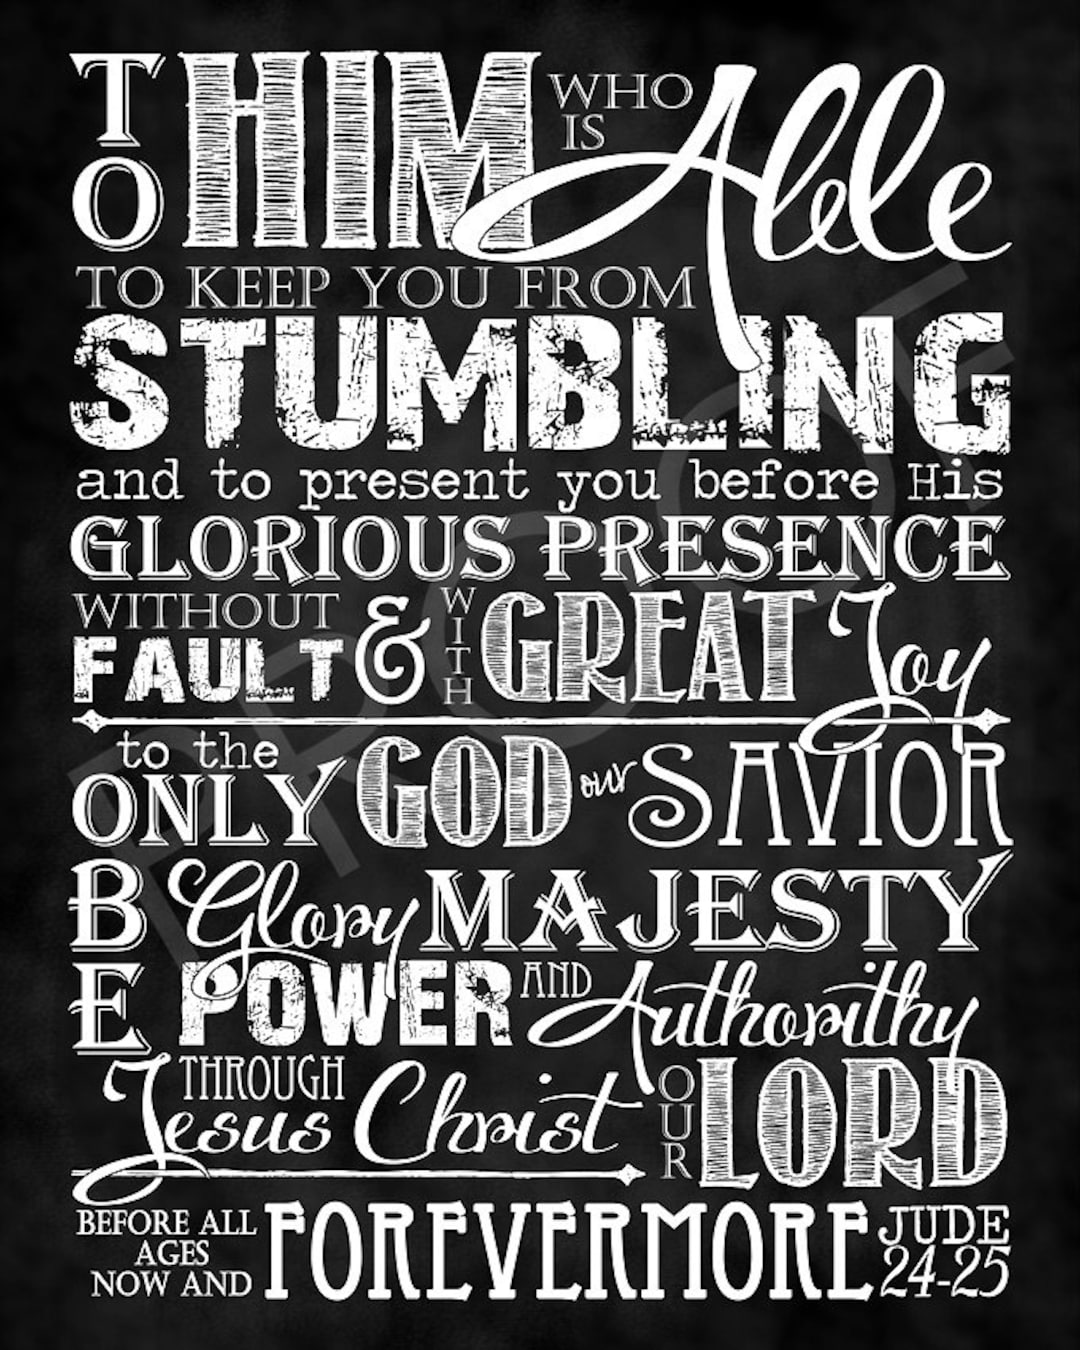 TO HIM WHO IS Able
TO KEEP YOU FROM
STUMBLING
and to present you before His
GLORIOUS PRESENCE
WITHOUT FAULT & WITH GREAT Joy
to the ONLY GOD our SAVIOR
BE Glory MAJESTY
POWER AND Authority
THROUGH Jesus Christ OUR LORD
BEFORE ALL AGES NOW AND FOREVERMORE JUDE 24-25
PROOF